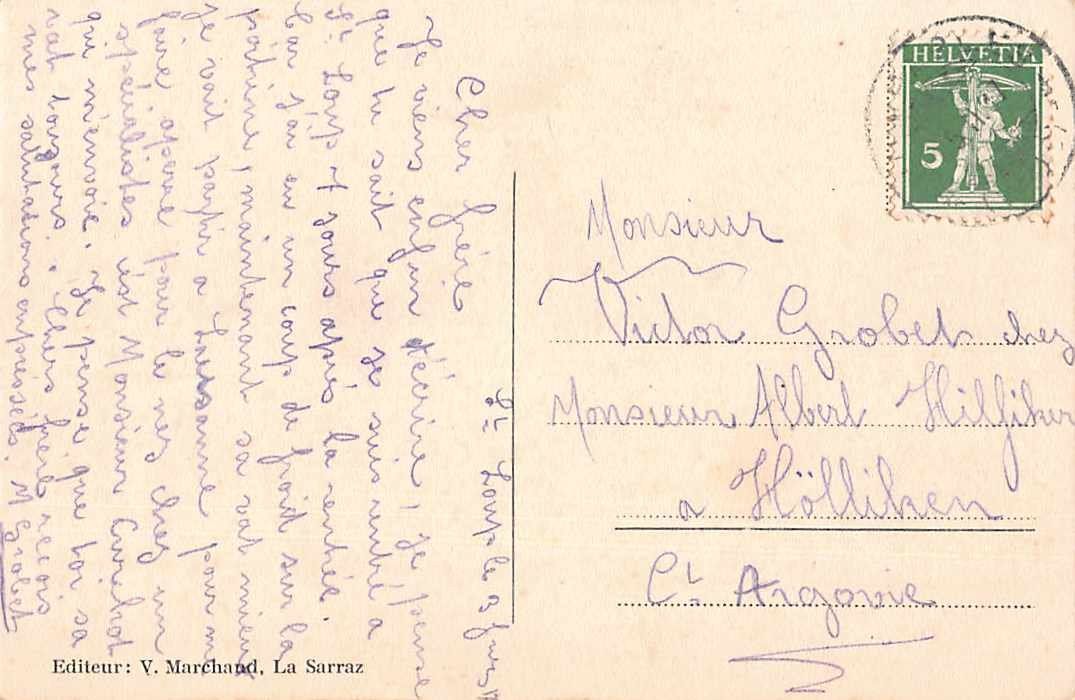 St Loup le 3
Cher frère
Je viens enfin t'écrire, je pense
que tu sait que je suis rentré a
St Loup 7 jours après la rentrée.
Car j'ai eu un coup de froid sur la
poitrine, maintenant sa vat mieux
je vait partir a Lausanne pour me
faire opéré pour le nez chez un
spécialistes est Monsieur
qui m'envoie. Je pense que toi sa
vat toujours. Chers frère recois
mes salutations enpressées. M Grobet
HELVETIA
5
Monsieur
Victor Grobet chez
Monsieur Albert Hilfiker
a Hölliken
Ct Argovie
Editeur: V. Marchand, La Sarraz